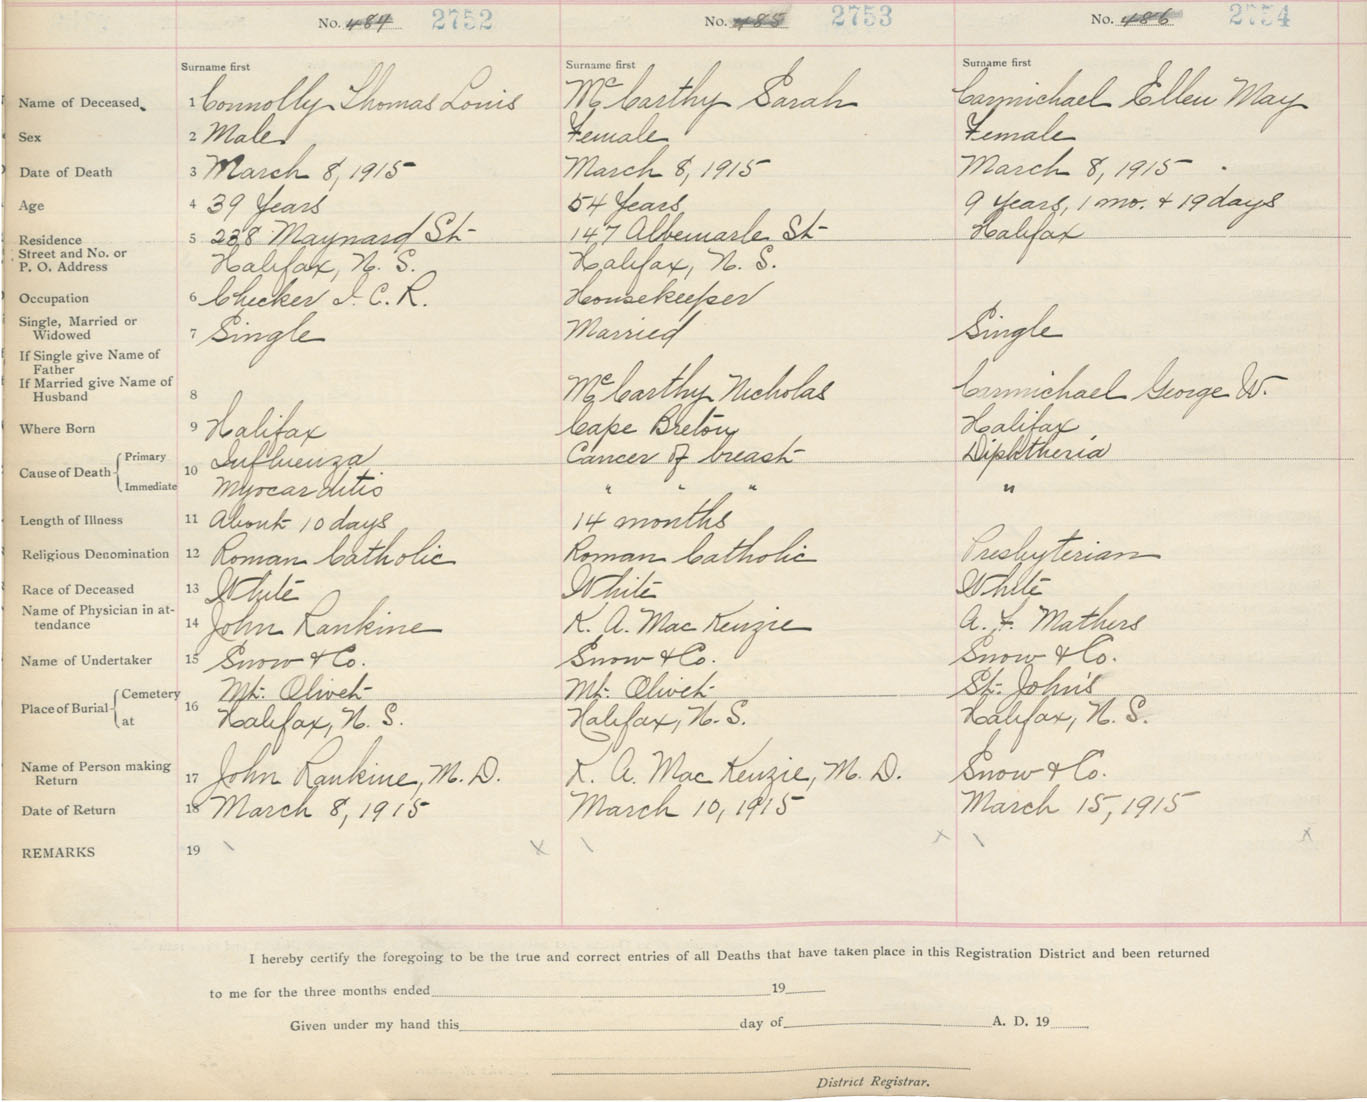 No. 484 2752 No. 485 2753 No. 486 2754
Surname first Surname first Surname first
Name of Deceased 1 Connolly Thomas Louis McCarthy Sarah Carmichael Ellen May
Sex 2 Male Female Female
Date of Death 3 March 8, 1915 March 8, 1915 March 8, 1915
Age 4 39 Years 54 Years 9 Years, 1 mo. & 19 days
Residence 5 238 Maynard St 147 Albemarle St Halifax
Street and No. or
P. O. Address Halifax, N. S. Halifax, N. S.
Occupation 6 Checker I. C. R. Housekeeper
Single, Married or
Widowed 7 Single Married Single
If Single give Name of
Father
If Married give Name of
Husband 8 McCarthy Nicholas Carmichael George W.
Where Born 9 Halifax Cape Breton Halifax
Cause of Death Primary 10 Influenza Cancer of breast Diphtheria
Immediate Myocarditis " " " "
Length of Illness 11 About 10 days 14 months
Religious Denomination 12 Roman Catholic Roman Catholic Presbyterian
Race of Deceased 13 White White White
Name of Physician in at-
tendance 14 John Rankine K. A. MacKenzie A. F. Mathers
Name of Undertaker 15 Snow & Co. Snow & Co. Snow & Co.
Place of Burial Cemetery 16 Mt. Olivet Mt. Olivet St. John's
at Halifax, N. S. Halifax, N. S. Halifax, N. S.
Name of Person making
Return 17 John Rankine, M. D. K. A. MacKenzie, M. D. Snow & Co.
Date of Return 18 March 8, 1915 March 10, 1915 March 15, 1915
REMARKS 19 \ x \ x \ x
I hereby certify the foregoing to be the true and correct entries of all Deaths that have taken place in this Registration District and been returned
to me for the three months ended 19
Given under my hand this day of A. D. 19
District Registrar.